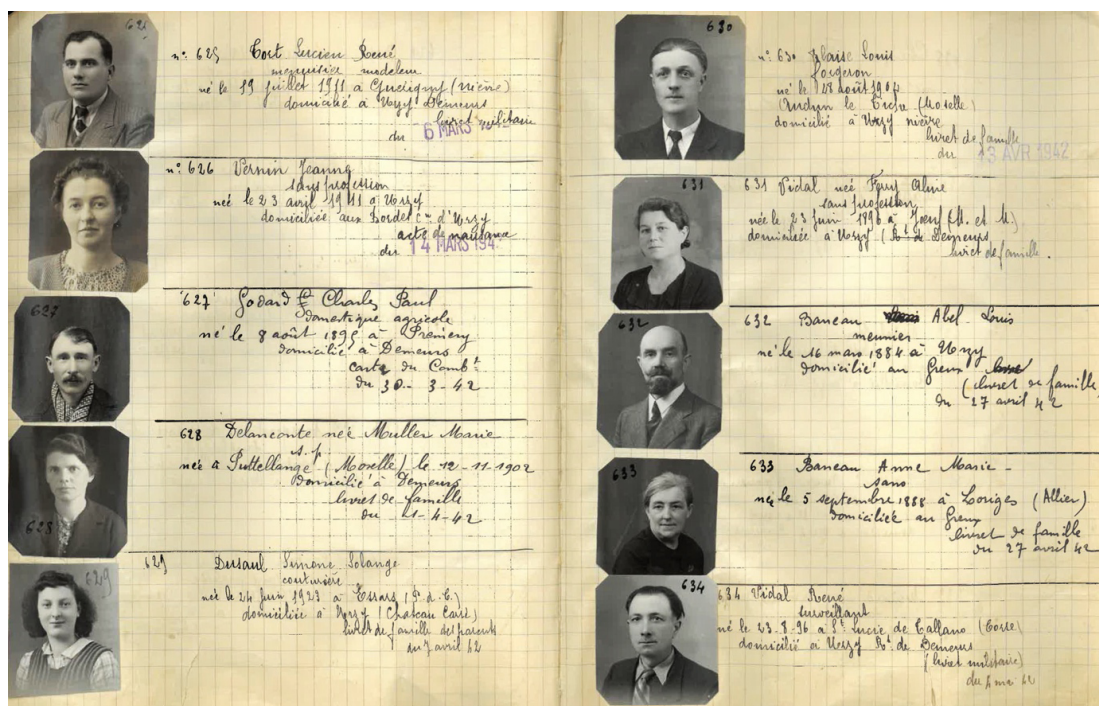 625
n° 625 Tort Lucien René
menuisier modeleur
né le 19 juillet 1911 à Guérigny (Nièvre)
domicilié à Urzy Demeurs
livret militaire
du 6 MARS 1942
n° 626 Vernin Jeanne
sans profession
née le 23 avril 1911 à Urzy
domiciliée aux Bordes cne d'Urzy
acte de naissance
du 14 MARS 194
627
627 Godard Charles Paul
domestique agricole
né le 8 août 1895 à Prémery
domicilié à Demeurs
carte du Combt
du 30-3-42
628
628 Delanconte née Muller Marie
s.p
née à Puttellange (Moselle) le 12-11-1902
Domicilié à Demeurs
livret de famille
du 1-4-42
629
629 Dusaul Simone Solange
couturière
née le 24 juin 1923 à Essars (P.d.C.)
domiciliée à Urzy (Chateau Carré)
livret de famille des parents
du 7 avril 42
630
n° 630 Blaise Louis
forgeron
né le 28 août 1904
Audun le Tiche (Moselle)
domicilié à Urzy nièvre
livret de famille
du 13 AVR 1942
631
631 Vidal née Ferry Aline
sans profession
née le 23 juin 1896 à Joeuf (M. et M.)
domiciliée à Urzy (Rte de Demeurs
livret de famille.
632
632 Baneau Abel Louis
meunier
né le 16 mars 1884 à Urzy
domicilié au Greux
(livret de famille
du 27 avril 42
633
633 Baneau Anne Marie -
sans
née le 5 septembre 1888 à Loriges (Allier)
domiciliée au Greux
livret de famille
du 27 avril 42
634
634 Vidal René
surveillant
né le 23-8-96 à Ste Lucie de Tallano (Corse)
domicilié à Urzy Rte de Demeurs
(livret militaire)
du 4 mai 42